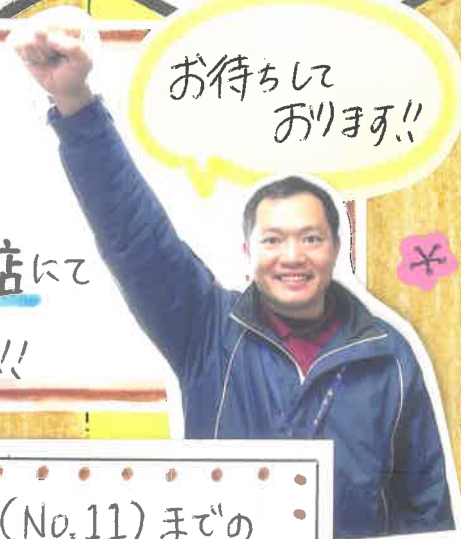 お待ちして
おります!!
店にて
!!
(No.11)までの